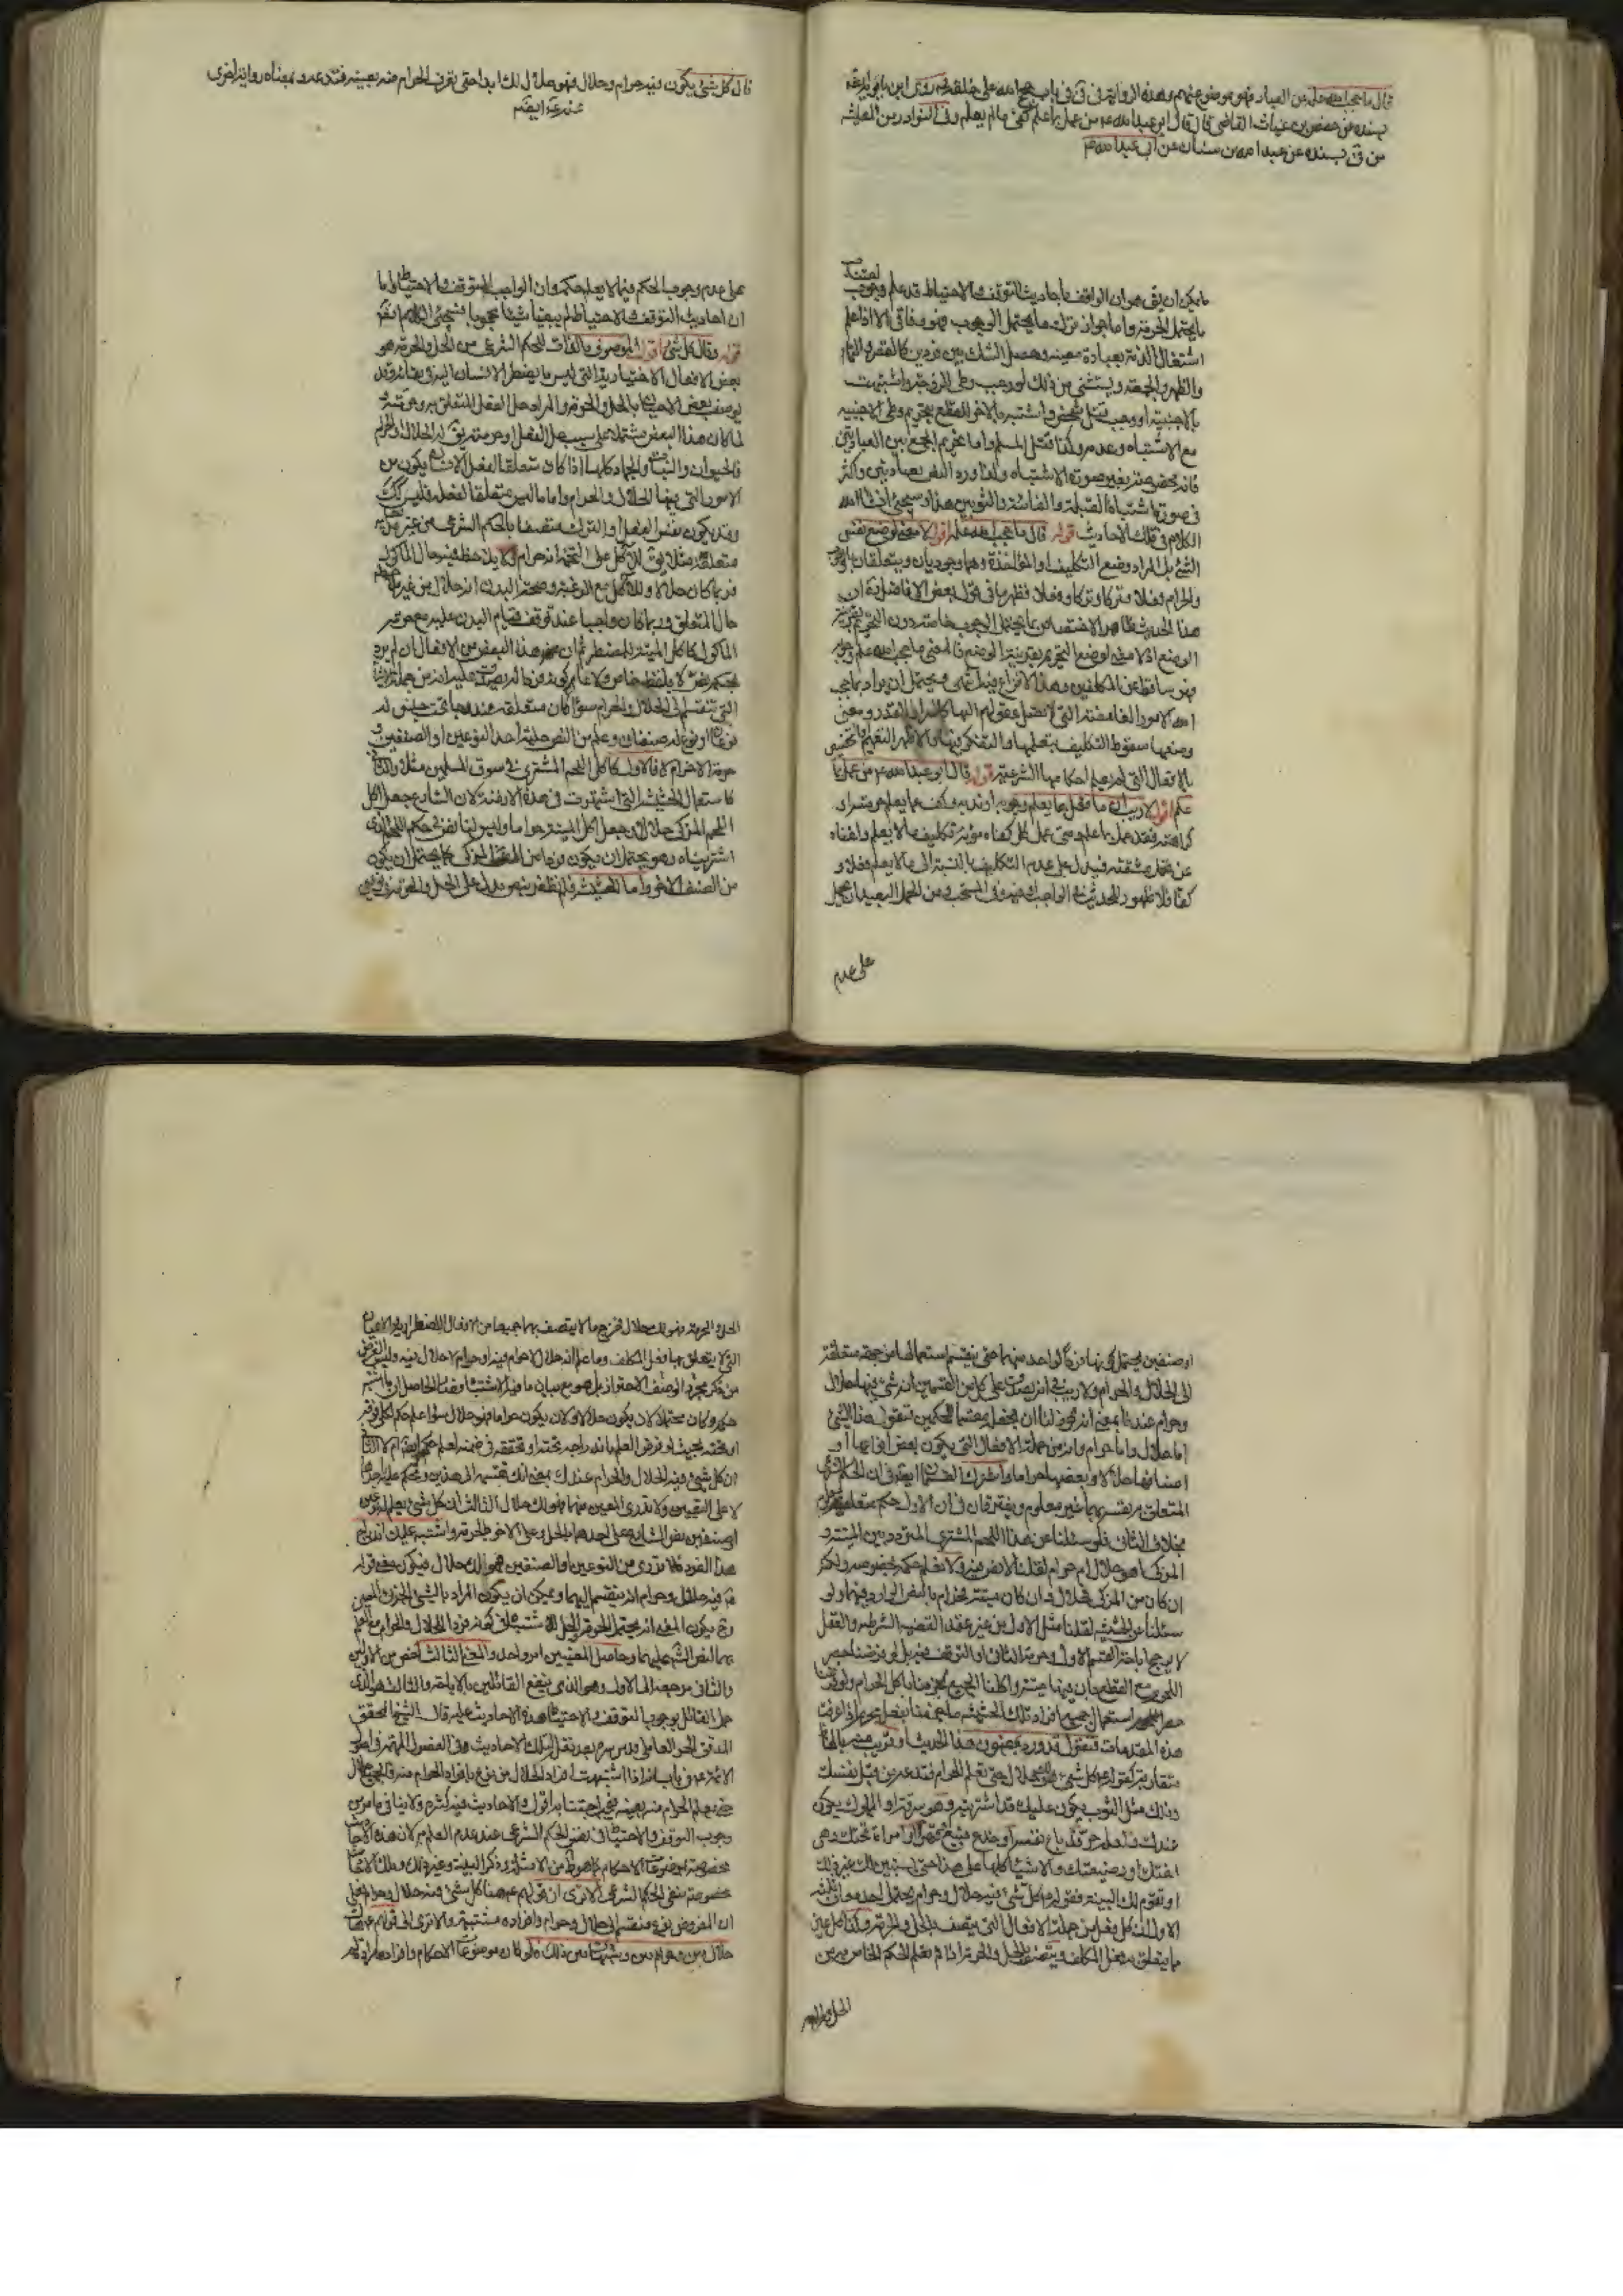 قال ما حجب الله علمه عن العباد فهو موضوع عنهم وهذه الرواية في في باب حجج الله على خلقه روى ابن بابويه
بسنده عن حفص بن غياث القاضي قال قال ابو عبدالله ع من عمل بما علم كفي ما لم يعلم وفي النوادر من المعيشه
من في بسنده عن عبدالله بن سنان عن ابي عبدالله ع
ما يمكن ان يق هو ان الواقف باحاديث التوقف والاحتياط قد علم وجوب
ما يحتمل الحرمة واما جواز ترك ما يحتمل الوجوب فهو وفاقي الا اذا علم
اشتغال الذمة بعبادة معينه وحصل الشك بين فردين كالقصر والتمام
والظهر والجمعه ويستثنى من ذلك لو وجب وطي الزوجة واشتبهت
بالاجنبية او وجب قتل شخص واشتبه بالاخر للقطع بتحريم وطي الاجنبيه
مع الاشتباه وعدمه وكذا قتل المسلم واما تحريم الجمع بين العبادتين
فانه مخصوص بغير صورة الاشتباه ولذا ورد النص بعبادتين واكثر
في صورة اشتباه القبلة والفائتة والثوبين هذا وسيجئ انشاء الله
الكلام في تلك الاحاديث قوله قال ما حجب الله علمه اقول لا معنى لوضع نفس
الشئ بل المراد وضع التكليف او المؤاخذة وهما وجوديان ويتعلقان بالواجب
والحرام فعلا وتركا وتركا وفعلا فظهر ما في قول بعض الافاضل انه ان
هذا الحديث ظاهر الاختصاص بما يحتمل الوجوب خاصة دون التحريم بقرينة
الوضع اذ لا معنى لوضع التحريم بقرينة الوضع فالمعنى ما حجب الله علم وجوبه
فهو ساقط عن المكلفين وهذا لا نزاع فيه انتهى ويحتمل ان يراد بما حجب
الله الامور الغامضة التي لا تصل عقولهم اليها كاسرار القدر ومعنى
وضعها سقوط التكليف بتعلمها والتفكر فيها والاظهر التعميم
بالافعال التي لم يعلم احكامها الشرعية قوله قال ابو عبدالله ع من عمل بما
علم اقول لا ريب ان ما فعل بما يعلم وجوبه او ندبه وكف عما يعلم حرمته او
كراهته فقد عمل بما علم ومتى عمل كل كفاه مؤنة تكليف ما لا يعلم واغناه
عن تحمل مشقته فيدل على عدم التكليف بالنسبة الى ما لا يعلم فعلا و
كفا ولا ظهور للحديث في الواجب دونه في المستحب ومن المحمل البعيد ان يحمل
على عدم
قال كل شئ يكون فيه حرام وحلال فهو حلال لك ابدا حتى تعرف الحرام منه بعينه فتدعه وبمعناه رواية اخرى
عنه ع ايضا
على عدم وجوب الحكم فيما لا يعلم حكمه وان الواجب التوقف والاحتياط واما
ان احاديث التوقف والاحتياط لم يبقيا شيئا محجوبا فسيجئ الكلام فيه
قوله وقال كل شئ اقول الموصوف بالذات للحكم الشرعي من الحل والحرمة هو
بعض الافعال الاختيارية التي ليس ما يضطر الانسان اليه في بقائه وقد
يوصف بعض الاعيان بالحل والحرمة والمراد حل الفعل المتعلق به وحرمته
لما كان هذا البعض مشتملا على سبب حل الفعل او حرمته يق له الحلال والحرام
فالحيوان والنبات والجماد كلها اذا كان متعلقا لفعل الانسان يكون من
الامور التي فيها الحلال والحرام واما ما ليس متعلقا لفعله فليس كك
وقد يكون نفس الفعل او الترك متصفا بالحكم الشرعي من غير نظر الى
متعلقه مثلا يق للاكل على التخمة انه حرام ولا يلاحظ فيه حال الماكول
فربما كان حلالا وللاكل مع الرغبة وصحة البدن انه حلال من غير ملاحظة
حال المتعلق وربما كان واجبا عند توقف قيام البدن عليه مع حرمة
الماكول كاكل الميتة للمضطر ثم ان بعض هذا البعض من الافعال ان لم يرد
بحكمه نص لا بلفظ خاص ولا عام يصدق عليه انه من جملة
التي تنقسم الى الحلال والحرام سواء كان متعلقه مندرجا تحت جنس له
نوعان او نوع له صنفان وعلم من النص حلية احد النوعين او الصنفين و
حرمة الاخر ام لا فالاول كاكل اللحم المشترى في سوق المسلمين مثلا والثاني
كاستعمال الحشيشة التي اشتهرت في هذه الازمنة لان الشارع جعل اكل
اللحم المذكى حلالا وجعل اكل الميتة حراما وليس لنا نص في حكم اللحم الذي
اشتريناه وهو يحتمل ان يكون فردا من المذكى كما يحتمل ان يكون
من الصنف الاخر واما الحشيشة فلم نظفر بنص يدل على الحل والحرمة في
او صنفين يحتمل كونها فردا لواحد منهما حتى ينقسم استعمالها من جهة متعلقه
الى الحلال والحرام ولا ريب في انه يصدق على كل من القسمين انه شئ فيه حلال
وحرام عندنا بمعنى انه يجوز لنا ان نجعله مقسما للحكمين فنقول هذا الشئ
اما حلال واما حرام وانه من جملة الافعال التي يكون بعض انواعها او
اصنافها حلالا وبعضها حراما واشتركا ايضا في ان الحكم الشرعي
المتعلق بنفسهما غير معلوم ويفترقان في ان الاول حكم متعلقه
بخلاف الثاني فلو سئلنا عن هذا اللحم المشترى المتردد بين الميتة و
المذكى اهو حلال ام حرام لقلنا لا نص فيه ولا نعلم حكمه بخصوصه ولكن
ان كان من المذكى فحلال وان كان ميتة فحرام بالنص الوارد فيهما ولو
سئلنا عن الحشيشة لقلنا مثل الاول من غير عقد القضية الشرطيه والعقل
لا يرجح اباحة القسم الاول وحرمة الثاني او التوقف فيه بل لو فرضنا حصر
اللحوم مع القطع بان فيها ميتة واكلنا الجميع لجزمنا باكل الحرام ولو
حصر استعمال جميع افراد تلك الحشيشة ما جزمنا بفعل محرم اذا عرفت
هذه المقدمات فنقول قد ورد بمضمون هذا الحديث او قريب منه
متقاربة كقوله ع كل شئ هو لك حلال حتى تعلم الحرام فتدعه من قبل نفسك
وذلك مثل الثوب يكون عليك قد اشتريته وهو سرقة او المملوك يكون
عندك ولعله حر قد باع نفسه او خدع فبيع قهرا او امراة تحتك وهي
اختك او رضيعتك والاشياء كلها على هذا حتى يستبين لك غير ذلك
او تقوم لك البينة فقوله ع كل شئ فيه حلال وحرام يحتمل احد معان ثلثه
الاول ان كل فعل من جملة الافعال التي يتصف بالحل والحرمة وكذا كل عين
مما يتعلق به فعل المكلف ويتصف بالحل والحرمة اذا لم تعلم الحكم الخاص به من
الحل والحرمه
الحل والحرمة فهو لك حلال فخرج ما لا يتصف بهما جميعا من الافعال الاضطراريه والاعيان
التي لا يتعلق بها فعل المكلف وما علم انه حلال لا حرام فيه او حرام لا حلال فيه وليس الغرض
من ذكر مجرد الوصف الاحتراز بل هو مع بيان ما فيه الاشتباه فصار الحاصل ان ما اشتبه
حكمه وكان محتملا لان يكون حلالا ولان يكون حراما فهو حلال سواء علم حكم كلي فوقه
او تحته بحيث لو فرض العلم باندراجه تحته او تحققه في ضمنه لعلم حكمه ايضا ام لا الثاني
ان كل شئ فيه الحلال والحرام عندك بمعنى انك تقسمه الى هذين وتحكم عليه باحدهما
لا على التعيين ولا تدري المعين منهما فهو لك حلال الثالث ان كل شئ يعلم له نوعين
او صنفين نص الشارع على احدهما بالحل وعلى الاخر بالحرمة واشتبه عليك اندراج
هذا الفرد فلا تدري من اي النوعين او الصنفين فهو لك حلال فيكون معنى قوله
ع فيه حلال وحرام انه ينقسم اليهما ويمكن ان يكون المراد بالشئ الجزئي المعين
وح يكون المعنى انه يحتمل الحرمة والحل للاشتباه في كونه فردا للحلال والحرام مع العلم
بهما لنص الشارع عليهما وحاصل المعنيين امر واحد والمعنى الثالث اخص من الاولين
والثاني مرجعه الى الاول وهو الذي ينفع القائلين بالاباحة والثالث هو الذي
حمل القائل بوجوب التوقف والاحتياط هذه الاحاديث عليه قال الشيخ المحقق
المدقق الحر العاملي قدس سره بعد نقل تلك الاحاديث في الفصول المهمة في اصول
الائمة ع في باب انه اذا اشتبهت افراد الحلال من نوع بافراد الحرام منه فالجميع حلال
حتى تعلم الحرام منه بعينه فيجب اجتنابه اقول والاحاديث فيه كثيرة ولا ينافي ما مر من
وجوب التوقف والاحتياط في نفس الحكم الشرعي عند عدم العلم به لان هذه الاحاديث
مخصوصة بموضوعات الاحكام كما هو ظ من الامثلة وذكر البينة وغير ذلك وتلك الاحاديث
مخصوصة بنفس الحكم الشرعي الا ترى ان قولهم ع هنا كل شئ فيه حلال وحرام
ان المفروض نوع منقسم الى حلال وحرام وافراده مشتبهة والا ترى الى قولهم ع هناك
حلال بين وحرام بين وشبهات بين ذلك فلو كان موضوعات الاحكام وافرادها مرادة